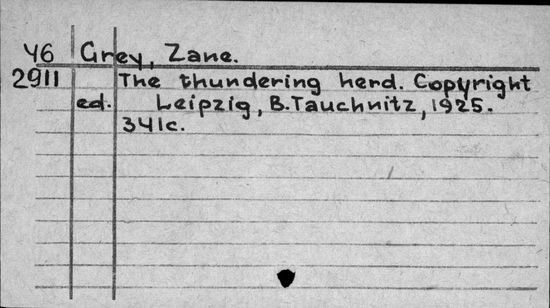 46 Grey, Zane.
2911 The thundering herd. Copyright
ed. Leipzig, B.Tauchnitz, 1925.
341c.